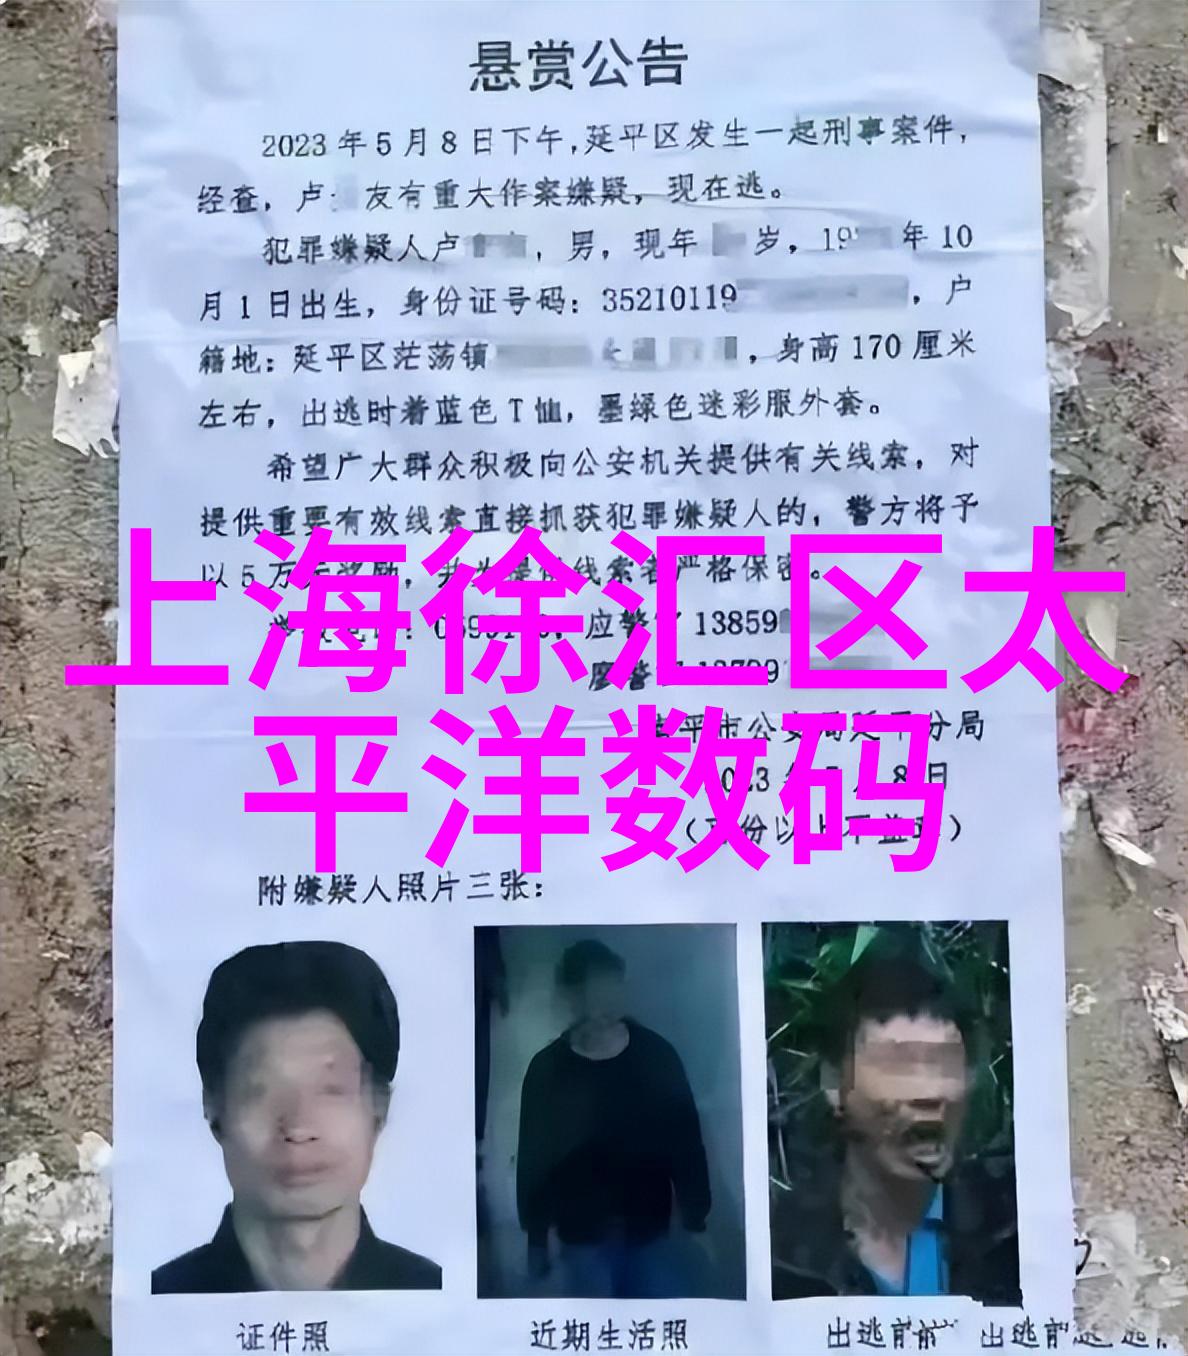 悬赏公告
2023年5月8日下午,延平区发生一起刑事案件,
经查，卢 友有重大作案嫌疑，现在逃。
犯罪嫌疑人卢 ，男，现年 岁，19 年10
月1日出生，身份证号码：35210119 ，户
籍地：延平区茫荡镇 ，身高170厘米
左右，出逃时着蓝色T恤，墨绿色迷彩服外套。
希望广大群众积极向公安机关提供有关线索，对
提供重要有效线索直接抓获犯罪嫌疑人的，警方将予
以5万 线索者严格保密。
上海徐汇区太
应警官13859
廖警
平洋数码
平市公安局延平分局
2023年5月8日
附嫌疑人照片三张：
证件照
近期生活照
出逃前 出逃前